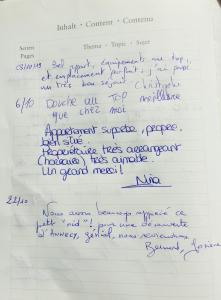 Inhalt · Content · Contenu
Seiten Thema · Topic · Sujet
Pages
Bel appart, équipements au top,
et emplacement parfait : j'ai passé
un très bon séjour
6/10 Douche au top meilleure
que chez moi
Appartement superbe, propre,
bien situé.
Propriétaire très arrangeant
très aimable.
Un grand merci!
Nous avons beaucoup apprécié ce
petit "nid"! pour une découverte
d'Annecy, génial, nous reviendrons
Bernard,